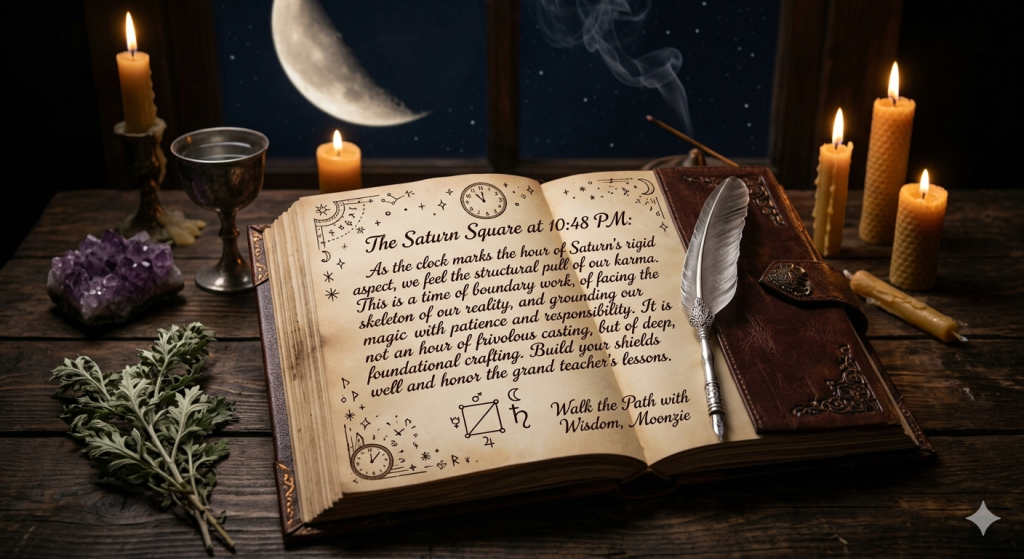 The Saturn Square at 10:48 PM:
As the clock marks the hour of Saturn's rigid
aspect, we feel the structural pull of our karma.
This is a time of boundary work, of facing the
skeleton of our reality, and grounding our
magic with patience and responsibility. It is
not an hour of frivolous casting, but of deep,
foundational crafting. Build your shields
well and honor the grand teacher's lessons.
Walk the Path with
Wisdom, Moonzie